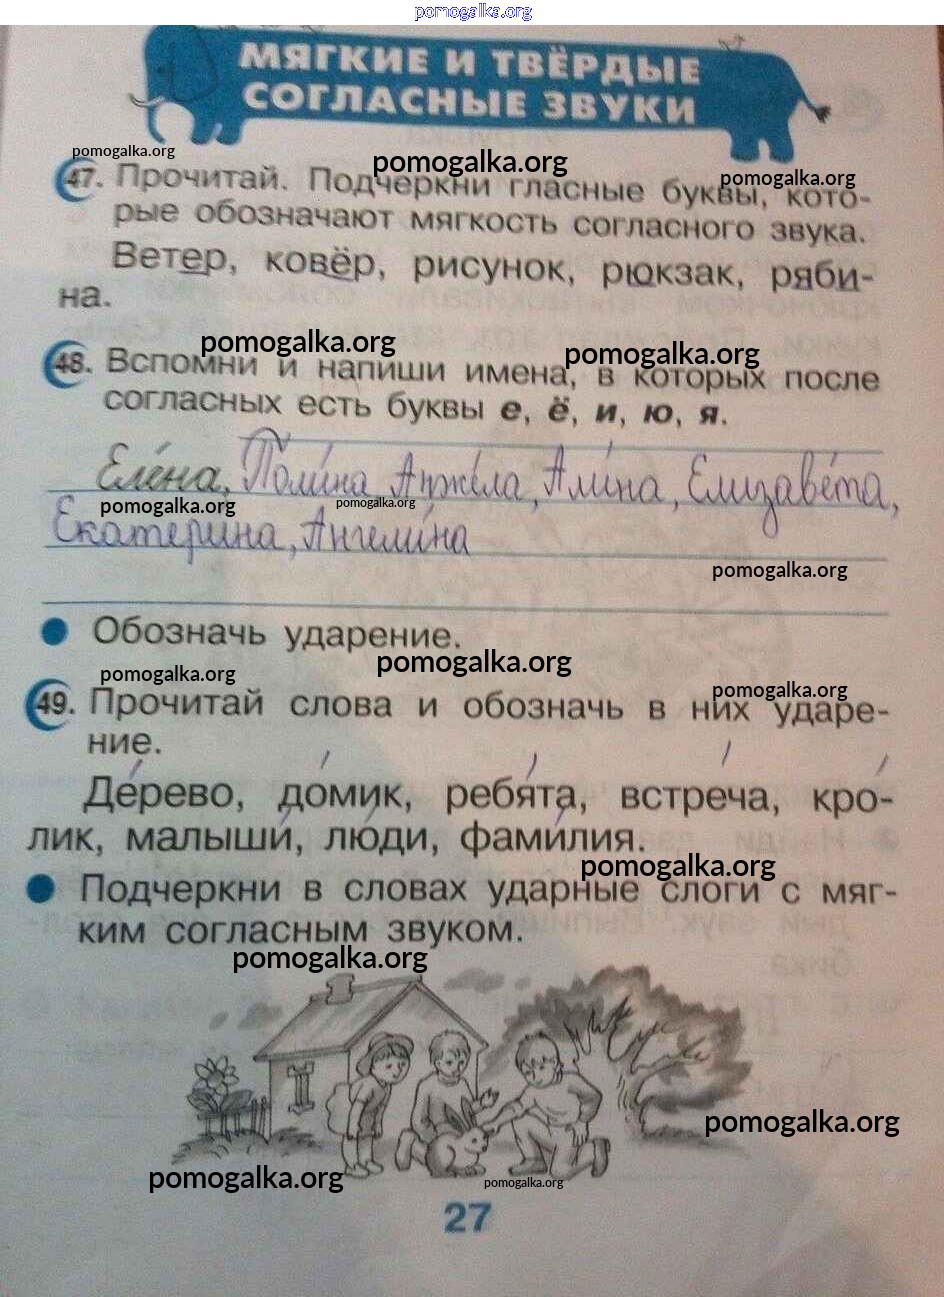 pomogalka.org
МЯГКИЕ И ТВЁРДЫЕ
СОГЛАСНЫЕ ЗВУКИ
pomogalka.org
pomogalka.org
pomogalka.org
47. Прочитай. Подчеркни гласные буквы, кото-
рые обозначают мягкость согласного звука.
Ветер, ковёр, рисунок, рюкзак, ряби-
на.
pomogalka.org
pomogalka.org
48. Вспомни и напиши имена, в которых после
согласных есть буквы е, ё, и, ю, я.
Еле́на, Поли́на, Анже́ла, Али́на, Елизаве́та,
pomogalka.org
pomogalka.org
Екатерина, Ангели́на
pomogalka.org
Обозначь ударение.
pomogalka.org
pomogalka.org
pomogalka.org
49. Прочитай слова и обозначь в них ударе-
ние.
Де́рево, до́мик, ребя́та, встре́ча, кро́-
лик, малыши́, лю́ди, фами́лия.
pomogalka.org
Подчеркни в словах ударные слоги с мяг-
ким согласным звуком.
pomogalka.org
pomogalka.org
pomogalka.org
pomogalka.org
27